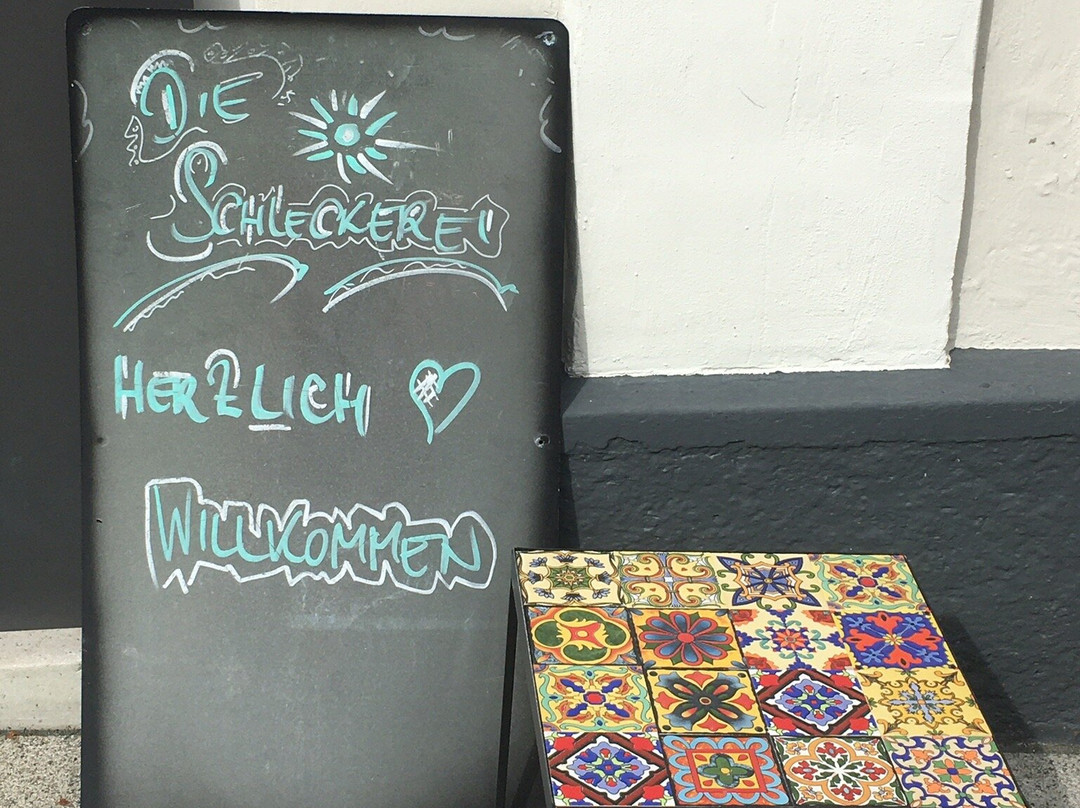 DIE
SCHLECKEREI
HERZLICH
WILLKOMMEN